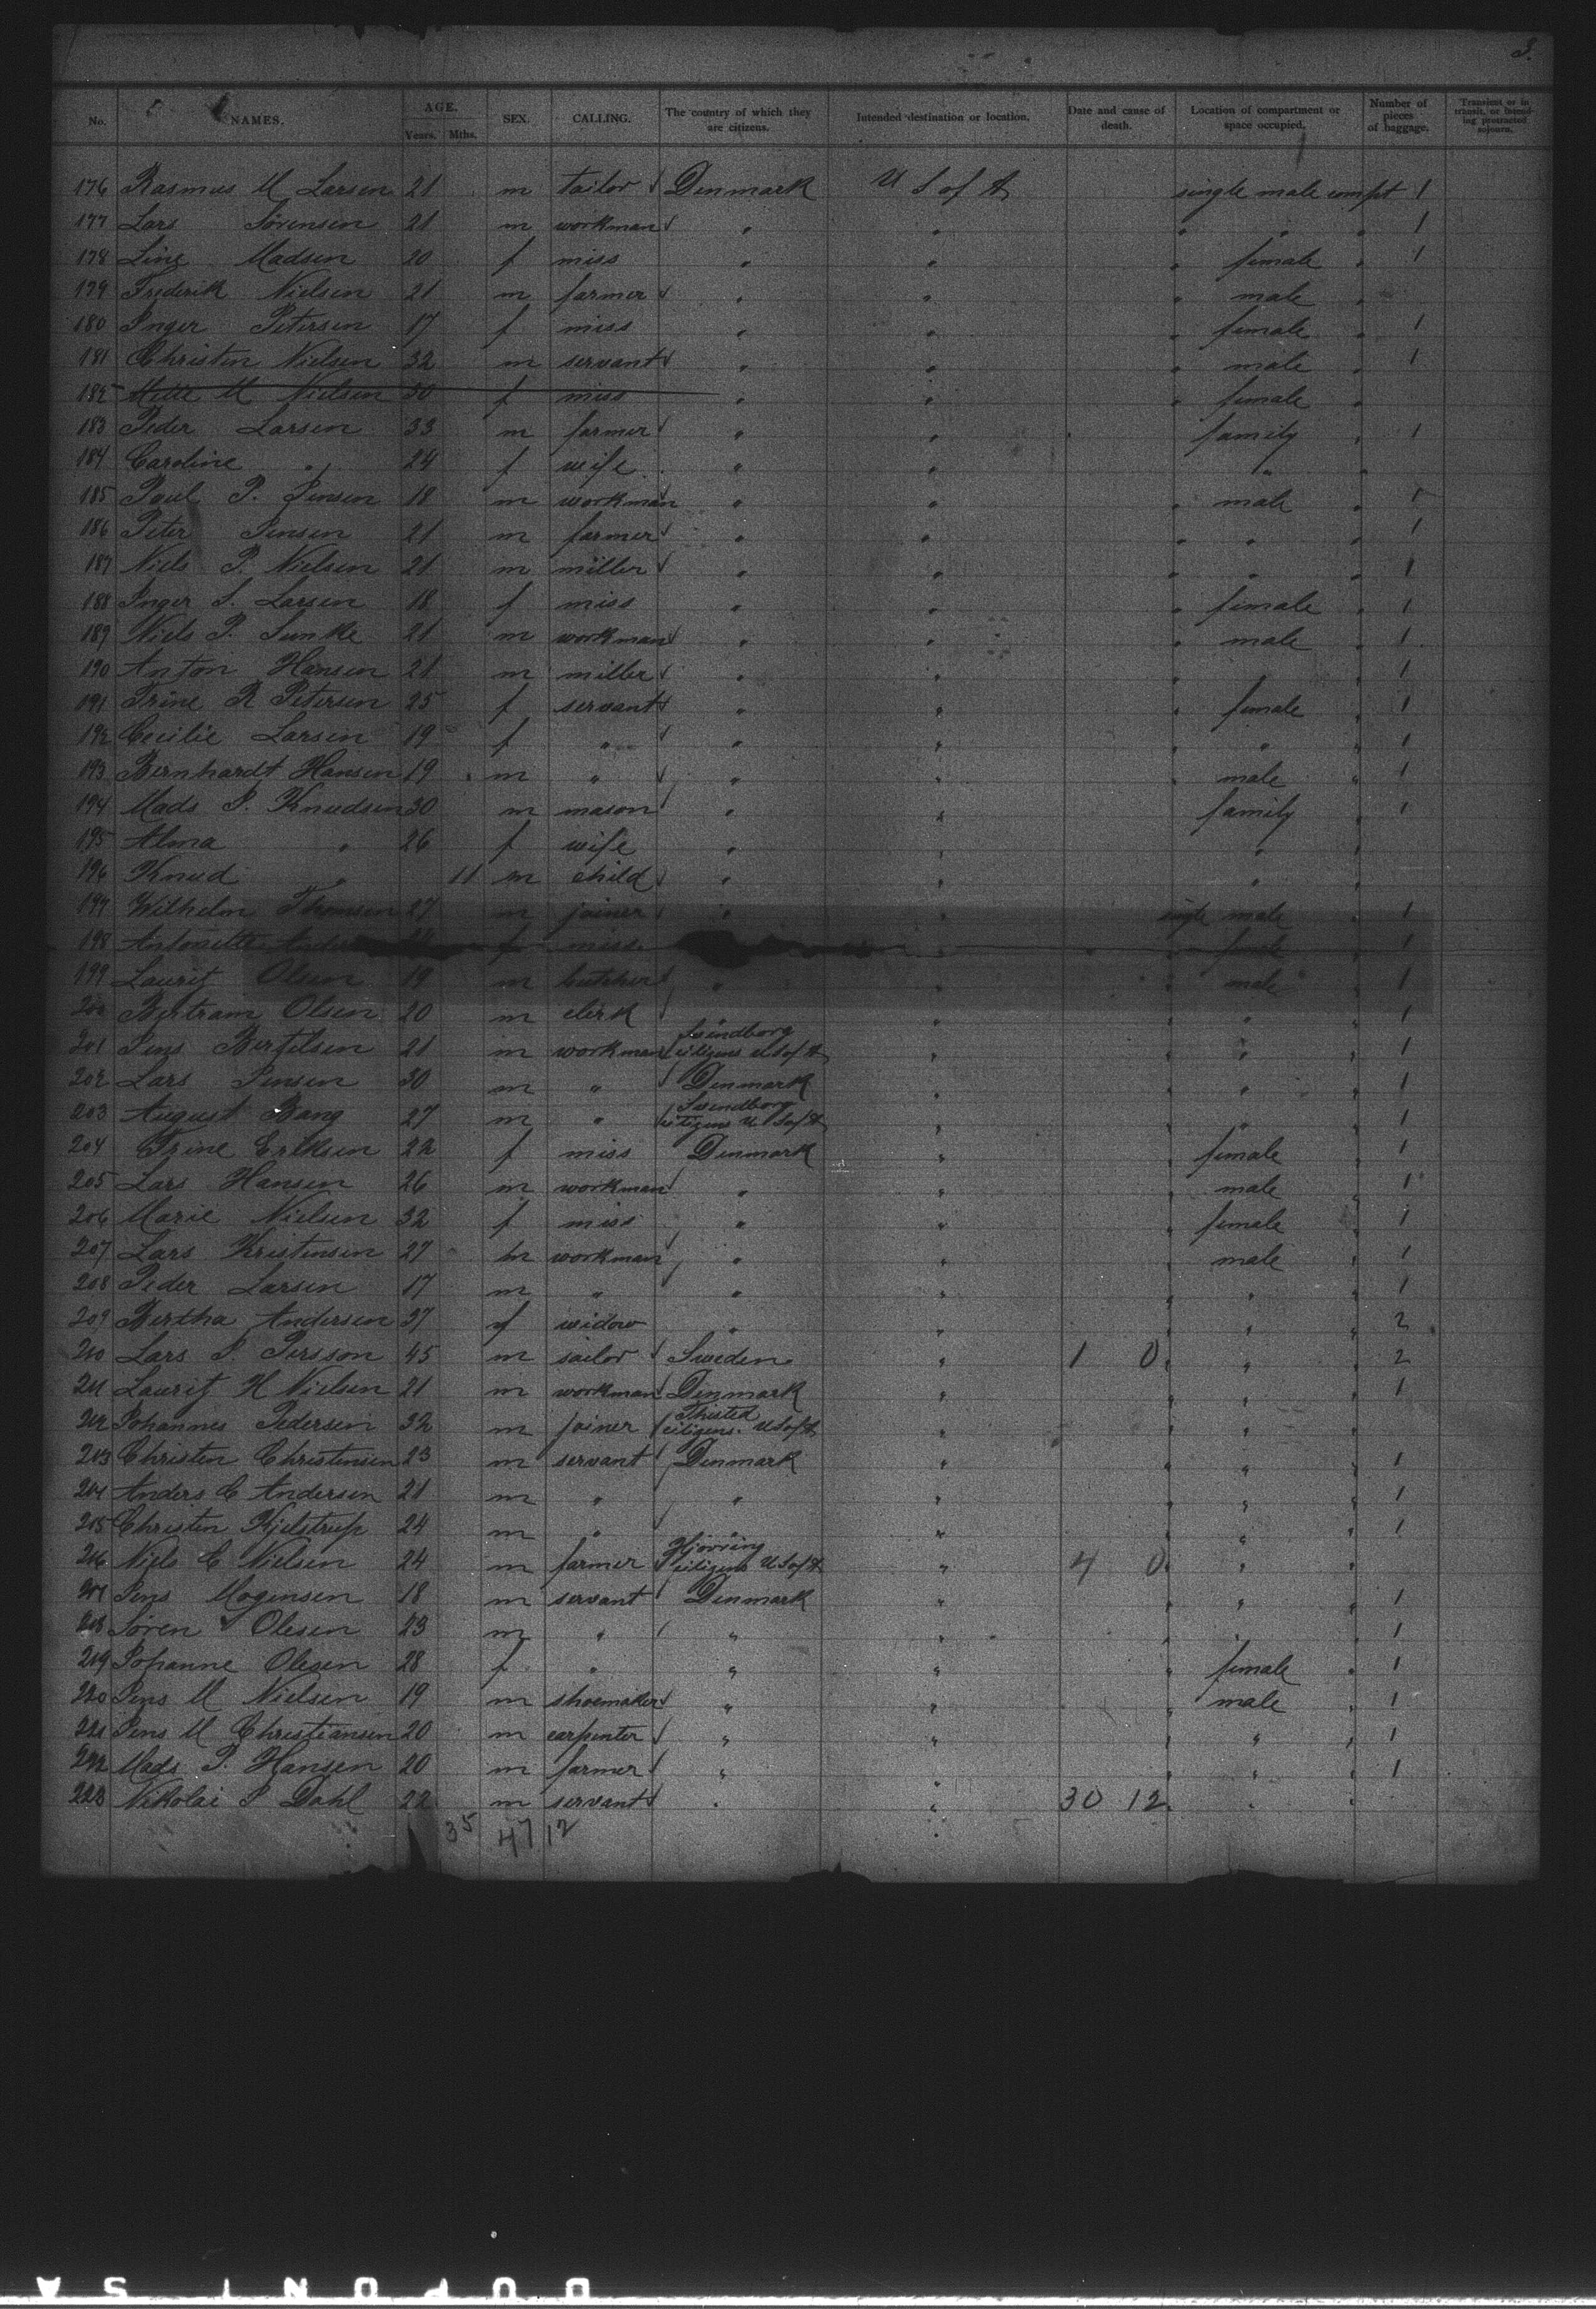 3.
No. NAMES. AGE. Years. Mths. SEX. CALLING. The country of which they are citizens. Intended destination or location. Date and cause of death. Location of compartment or space occupied. Number of pieces of baggage. Transient or in transit, or intending protracted sojourn.
176 Rasmus M Larsen 21 m tailor Denmark U S of A single male compt 1
177 Lars Sörensen 21 m workman " " " " " 1
178 Line Madsen 20 f miss " " " female " 1
179 Frederik Nielsen 21 m farmer " " " male "
180 Inger Petersen 17 f miss " " " female " 1
181 Christen Nielsen 32 m servant " " " male " 1
182 Mette M Nielsen 30 f miss " " " female "
183 Peder Larsen 33 m farmer " " family " 1
184 Caroline " 24 f wife " " " "
185 Paul P. Jensen 18 m workman " " " male " 1
186 Peter Jensen 21 m farmer " " " " " 1
187 Niels P. Nielsen 21 m miller " " " " " 1
188 Inger S. Larsen 18 f miss " " " female " 1
189 Niels P. Lunke 21 m workman " " " male " 1
190 Anton Hansen 21 m miller " " " " " 1
191 Trine R Petersen 25 f servant " " " female " 1
192 Cecilie Larsen 19 f " " " " " " 1
193 Bernhardt Hansen 19 m " " " " male " 1
194 Mads P. Knudsen 30 m mason " " family " 1
195 Alma " 26 f wife " " " "
196 Knud " 11 m child " " " "
197 Wilhelm Thomsen 27 m joiner " " single male " 1
198 Antonette f miss " female " 1
199 Lauritz Olsen 19 m butcher " " " male " 1
200 Bertram Olsen 20 m clerk " " " " " 1
201 Jens Bertelsen 21 m workman Svendborg citizens U S of A " " " " 1
202 Lars Jensen 30 m " Denmark " " " " 1
203 August Bang 27 m " Svendborg citizens U S of A " " " " 1
204 Trine Eriksen 22 f miss Denmark " " female " 1
205 Lars Hansen 26 m workman " " " male " 1
206 Marie Nielsen 32 f miss " " " female " 1
207 Lars Kristensen 27 m workman " " " male " 1
208 Peder Larsen 17 m " " " " " " 1
209 Bertha Andersen 37 f widow " " " " " 2
210 Lars P. Persson 45 m sailor Sweden " 1 0 " " " 2
211 Lauritz H Nielsen 21 m workman Denmark " " " " 1
212 Johannes Pedersen 32 m joiner Thisted citizens U S of A " " " "
213 Christen Christensen 23 m servant Denmark " " " " 1
214 Anders C Andersen 21 m " " " " " " 1
215 Christen Kjelstrup 24 m " " " " " " 1
216 Niels C Nielsen 24 m farmer Hjörring citizens U S of A " 4 0 " " "
217 Jens Mogensen 18 m servant Denmark " " " " 1
218 Sören Olesen 23 m " " " " " " 1
219 Johanne Olesen 28 f " " " " female " 1
220 Jens M Nielsen 19 m shoemaker " " " male " 1
221 Jens M Christiansen 20 m carpenter " " " " " 1
222 Mads P. Hansen 20 m farmer " " " " " 1
223 Nikolai P Dahl 22 m servant " " 30 12 " " "
35 47 12